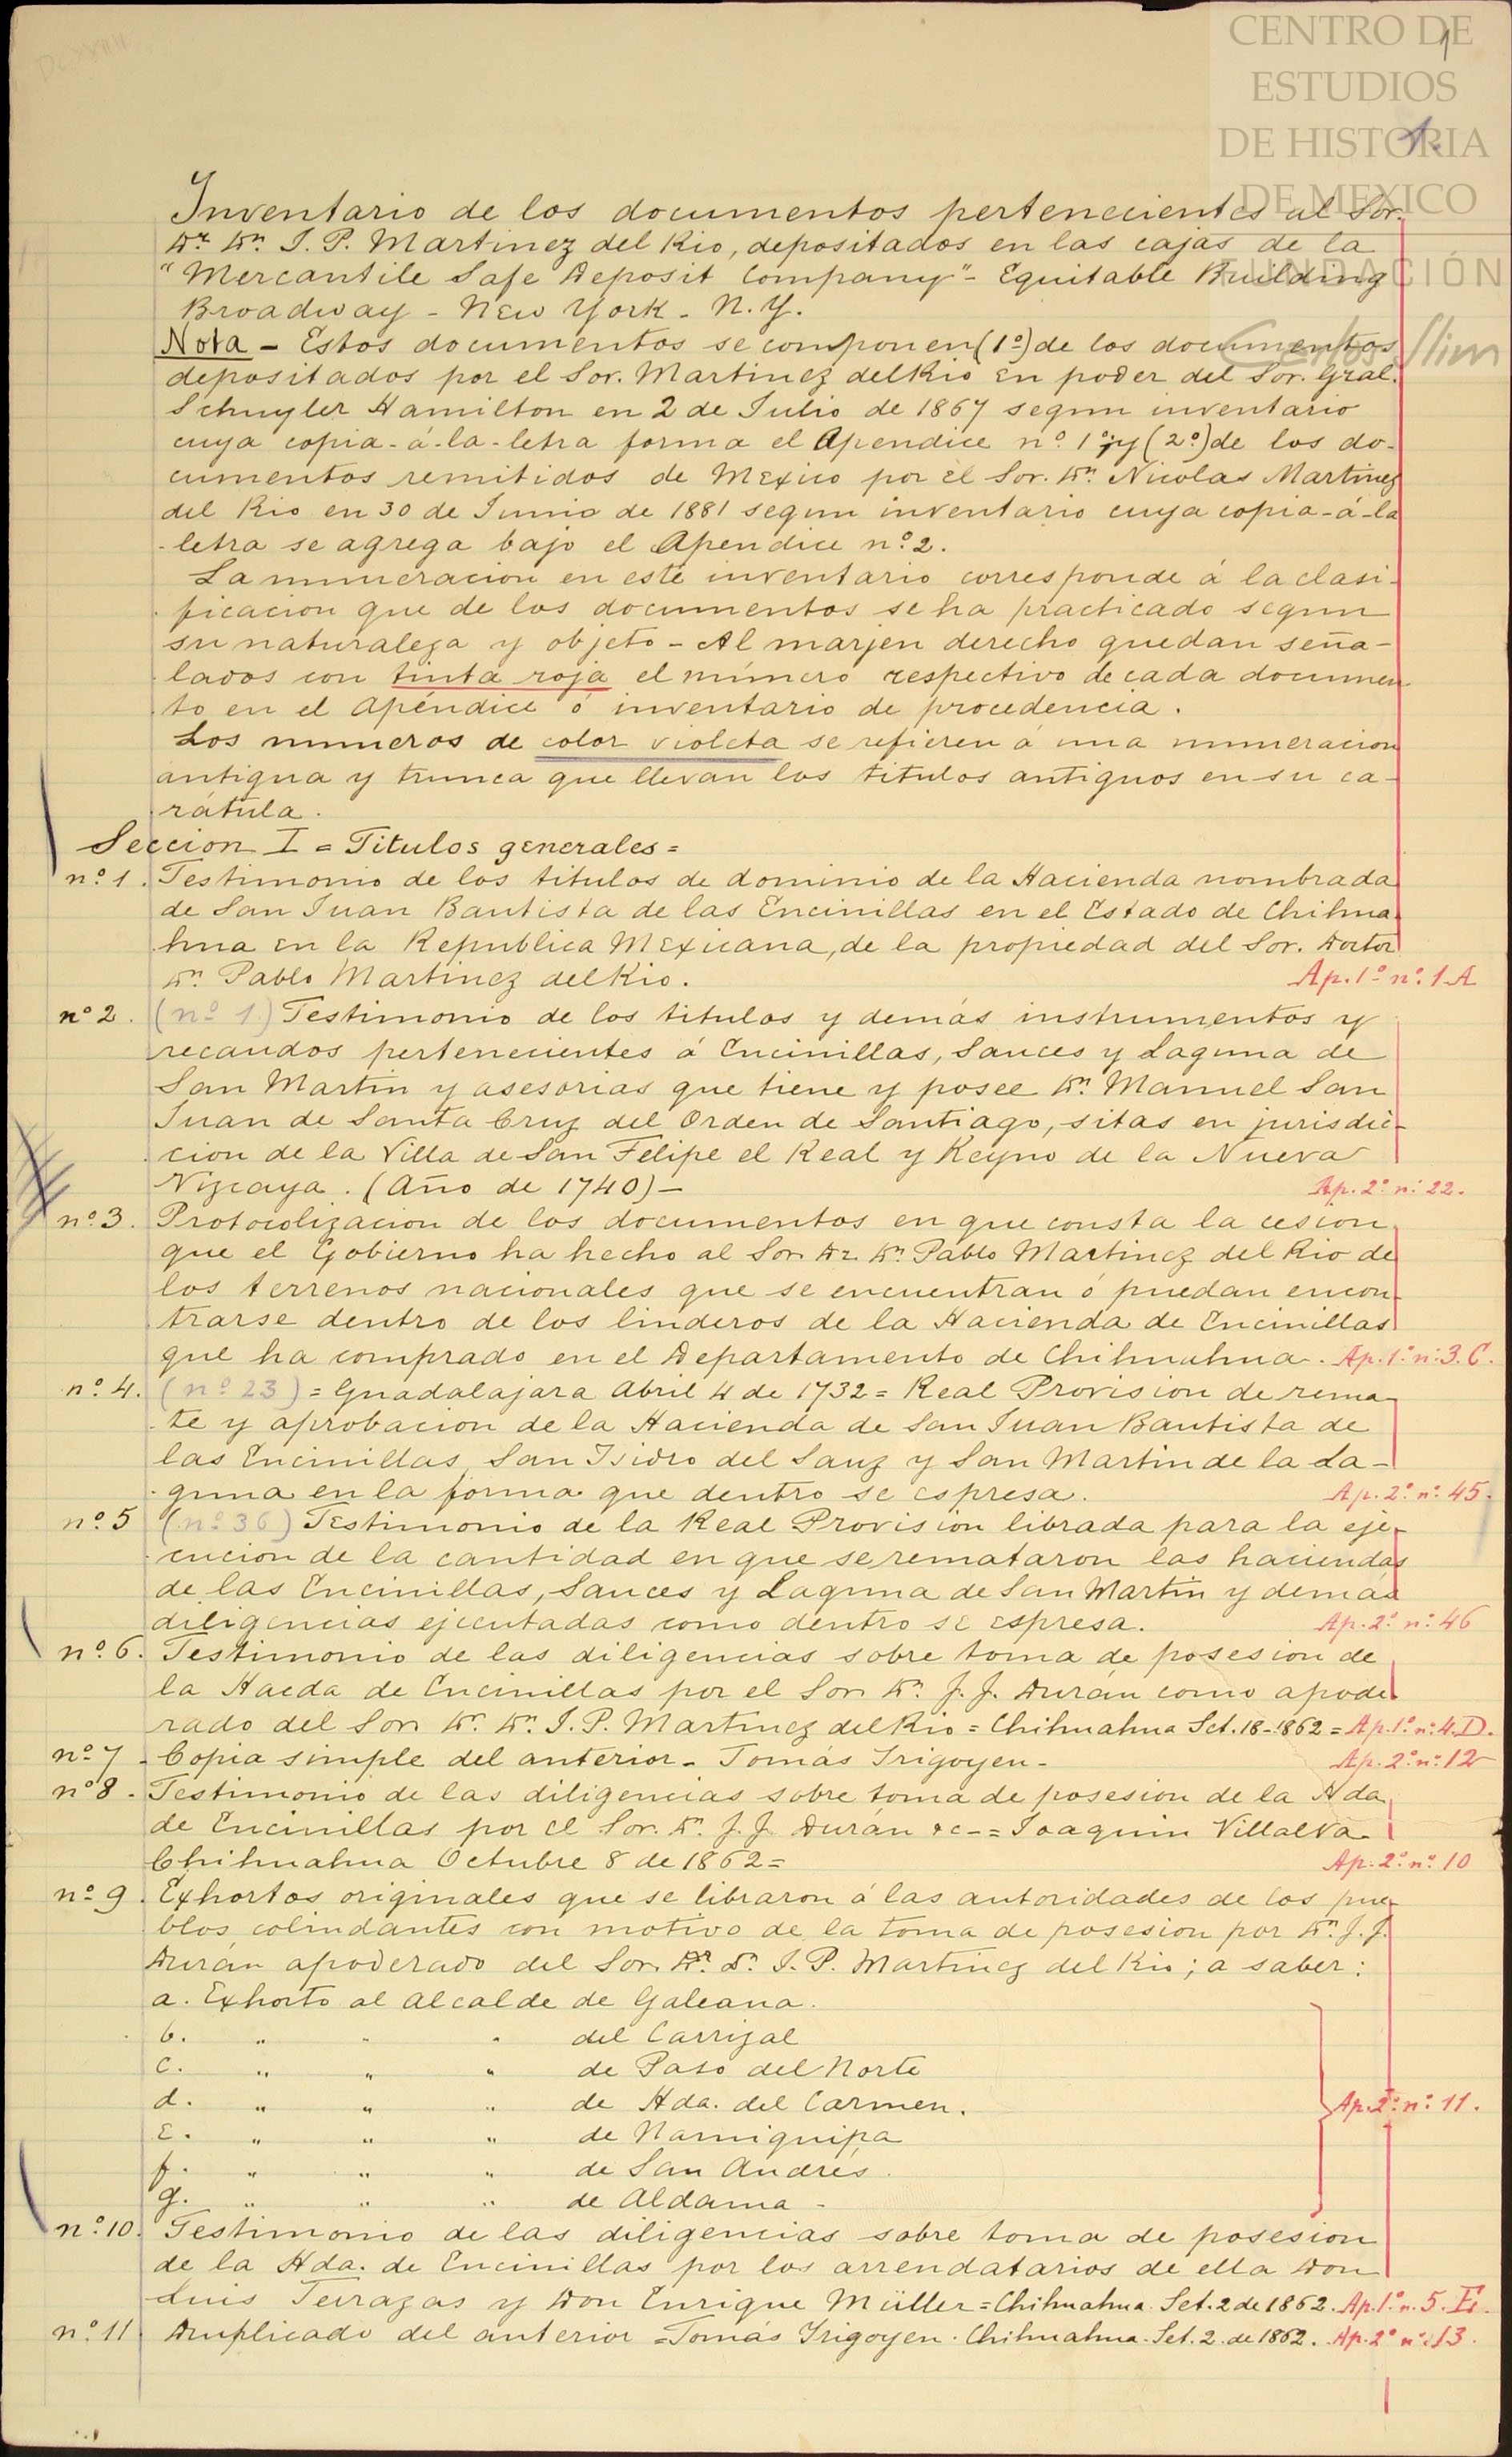 CENTRO DE
ESTUDIOS
DE HISTORIA
DE MEXICO
FUNDACIÓN
Carlos Slim
1
1.
Inventario de los documentos pertenecientes al Sor.
Dr. Dn. J. P. Martinez del Rio, depositados en las cajas de la
"Mercantile Safe Deposit Company" - Equitable Building
Broadway - New York - N. Y.
Nota - Estos documentos se componen (1º) de los documentos
depositados por el Sor. Martinez del Rio en poder del Sor. Gral.
Schuyler Hamilton en 2 de Julio de 1867 segun inventario
cuya copia-á-la-letra forma el Apendice nº 1º; y (2º) de los do-
cumentos remitidos de Mexico por el Sor. Dn. Nicolas Martinez
del Rio en 30 de Junio de 1881 segun inventario cuya copia-á-la
letra se agrega bajo el Apendice nº 2.
La numeracion en este inventario corresponde á la clasi-
ficacion que de los documentos se ha practicado segun
su naturaleza y objeto - Al marjen derecho quedan seña-
lados con tinta roja el número respectivo de cada documen
to en el Apéndice ó inventario de procedencia.
Los numeros de color violeta se refieren á una numeracion
antigua y trunca que llevan los titulos antiguos en su ca-
rátula.
Seccion I = Titulos generales =
nº 1. Testimonio de los titulos de dominio de la Hacienda nombrada
de San Juan Bautista de las Encinillas en el Estado de Chihua-
hua en la Republica Mexicana, de la propiedad del Sor. Doctor
Dn. Pablo Martinez del Rio. Ap. 1º nº 1-A
nº 2. (nº 1.) Testimonio de los titulos y demás instrumentos y
recaudos pertenecientes á Encinillas, Sauces y Laguna de
San Martin y asesorias que tiene y posee Dn. Manuel San
Juan de Santa Cruz del Orden de Santiago, sitas en jurisdic-
cion de la Villa de San Felipe el Real y Reyno de la Nueva
Vizcaya. (Año de 1740) - Ap. 2º nº 22.
nº 3. Protocolizacion de los documentos en que consta la cesion
que el Gobierno ha hecho al Sor. Dr. Dn. Pablo Martinez del Rio de
los terrenos nacionales que se encuentran ó puedan encon-
trarse dentro de los linderos de la Hacienda de Encinillas
que ha comprado en el Departamento de Chihuahua. Ap. 1º nº 3. C.
nº 4. (nº 23) = Guadalajara Abril 4 de 1732 = Real Provision de rema-
te y aprobacion de la Hacienda de San Juan Bautista de
las Encinillas, San Isidro del Sauz y San Martin de la La-
guna en la forma que dentro se espresa. Ap. 2º nº 45.
nº 5 (nº 36) Testimonio de la Real Provision librada para la eje-
cucion de la cantidad en que se remataron las haciendas
de las Encinillas, Sauces y Laguna de San Martin y demás
diligencias ejecutadas como dentro se espresa. Ap. 2º nº 46
nº 6. Testimonio de las diligencias sobre toma de posesion de
la Haeda de Encinillas por el Sor. Dn. J. J. Durán como apode
rado del Sor. Dr. Dn. J. P. Martinez del Rio = Chihuahua Set. 18-1862 = Ap. 1º nº 4. D.
nº 7 - Copia simple del anterior - Tomás Irigoyen - Ap. 2º nº 12
nº 8. Testimonio de las diligencias sobre toma de posesion de la Hda
de Encinillas por el Sor. Dn. J. J. Durán &c - = Joaquin Villalva
Chihuahua Octubre 8 de 1862 = Ap. 2º nº 10
nº 9. Exhortos originales que se libraron á las autoridades de los pue-
blos colindantes con motivo de la toma de posesion por Dn. J. J.
Durán apoderado del Sor. Dr. Dn. J. P. Martinez del Rio; a saber:
a. Exhorto al Alcalde de Galeana.
b. " " " del Carrizal
c. " " " de Paso del Norte
d. " " " de Hda. del Carmen. Ap. 2º nº 11.
e. " " " de Namiquipa
f. " " " de San Andrés.
g. " " " de Aldama -
nº 10. Testimonio de las diligencias sobre toma de posesion
de la Hda. de Encinillas por los arrendatarios de ella Don
Luis Terrazas y Don Enrique Müller = Chihuahua Set. 2 de 1862. Ap. 1º n. 5. E.
nº 11 Duplicado del anterior = Tomás Irigoyen. Chihuahua. Set. 2. de 1862. Ap. 2º nº 13.